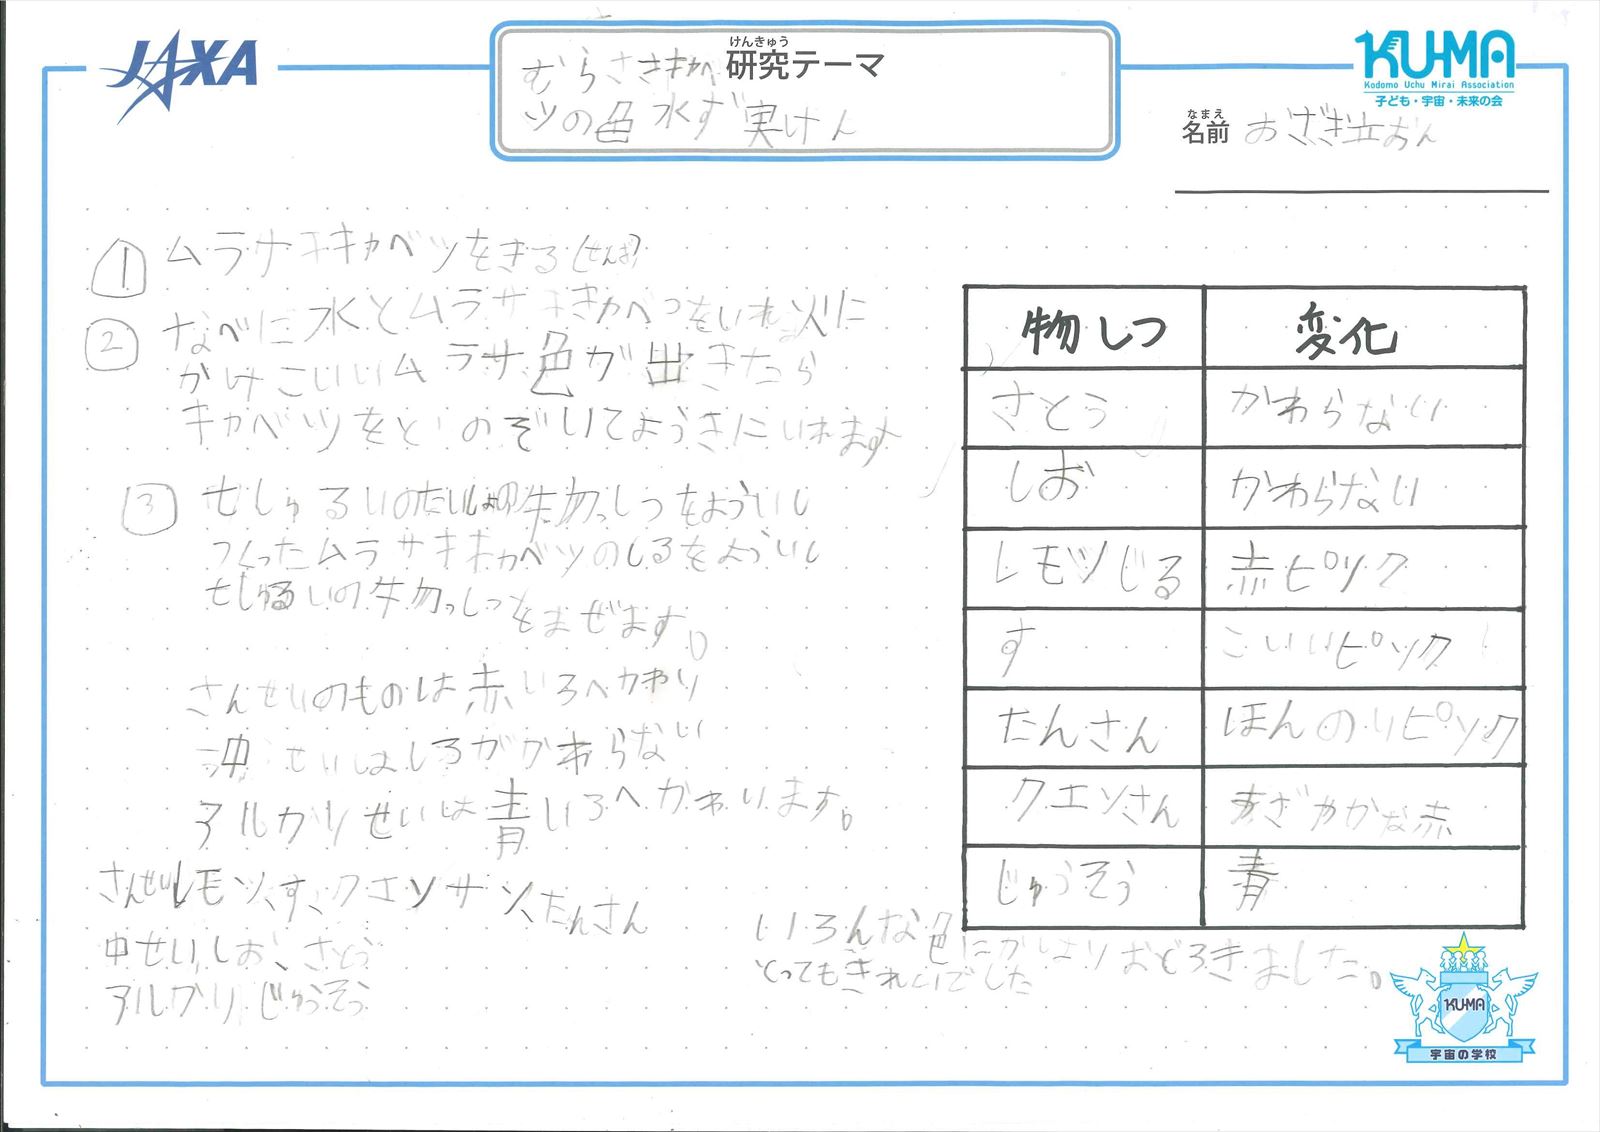 JAXA
けんきゅう
研究テーマ
むらさきキャベ
ツの色水ず実けん
KU-MA
Kodomo Uchu Mirai Association
子ども・宇宙・未来の会
なまえ
名前 おざき
① ムラサキキャベツをきる(せんぎり)
② なべに水とムラサキきゃべつをいれ火に
かけこいいムラサ色が出きたら
キャベツをとりのぞいてようきにいれます
③ 七しゅるいのたいしょの物っしつをよういし
つくったムラサキキャベツのしるをよういし
七しゅるいの物っしつをまぜます。
さんせいのものは赤いろへかわり
中せいはいろがかわらない
アルカリせいは青いろへかわいます。
さんせいレモン、す、クエンサン、たんさん
中せいしお、さとう
アルカリじゅうそう
物しつ 変化
さとう かわらない
しお かわらない
レモンじる 赤ピンク
す こいいピンク
たんさん ほんのりピンク
クエンさん あざやかな赤
じゅうそう 青
いろんな色にかわりおどろきました。
とってもきれいでした
KU-MA
宇宙の学校